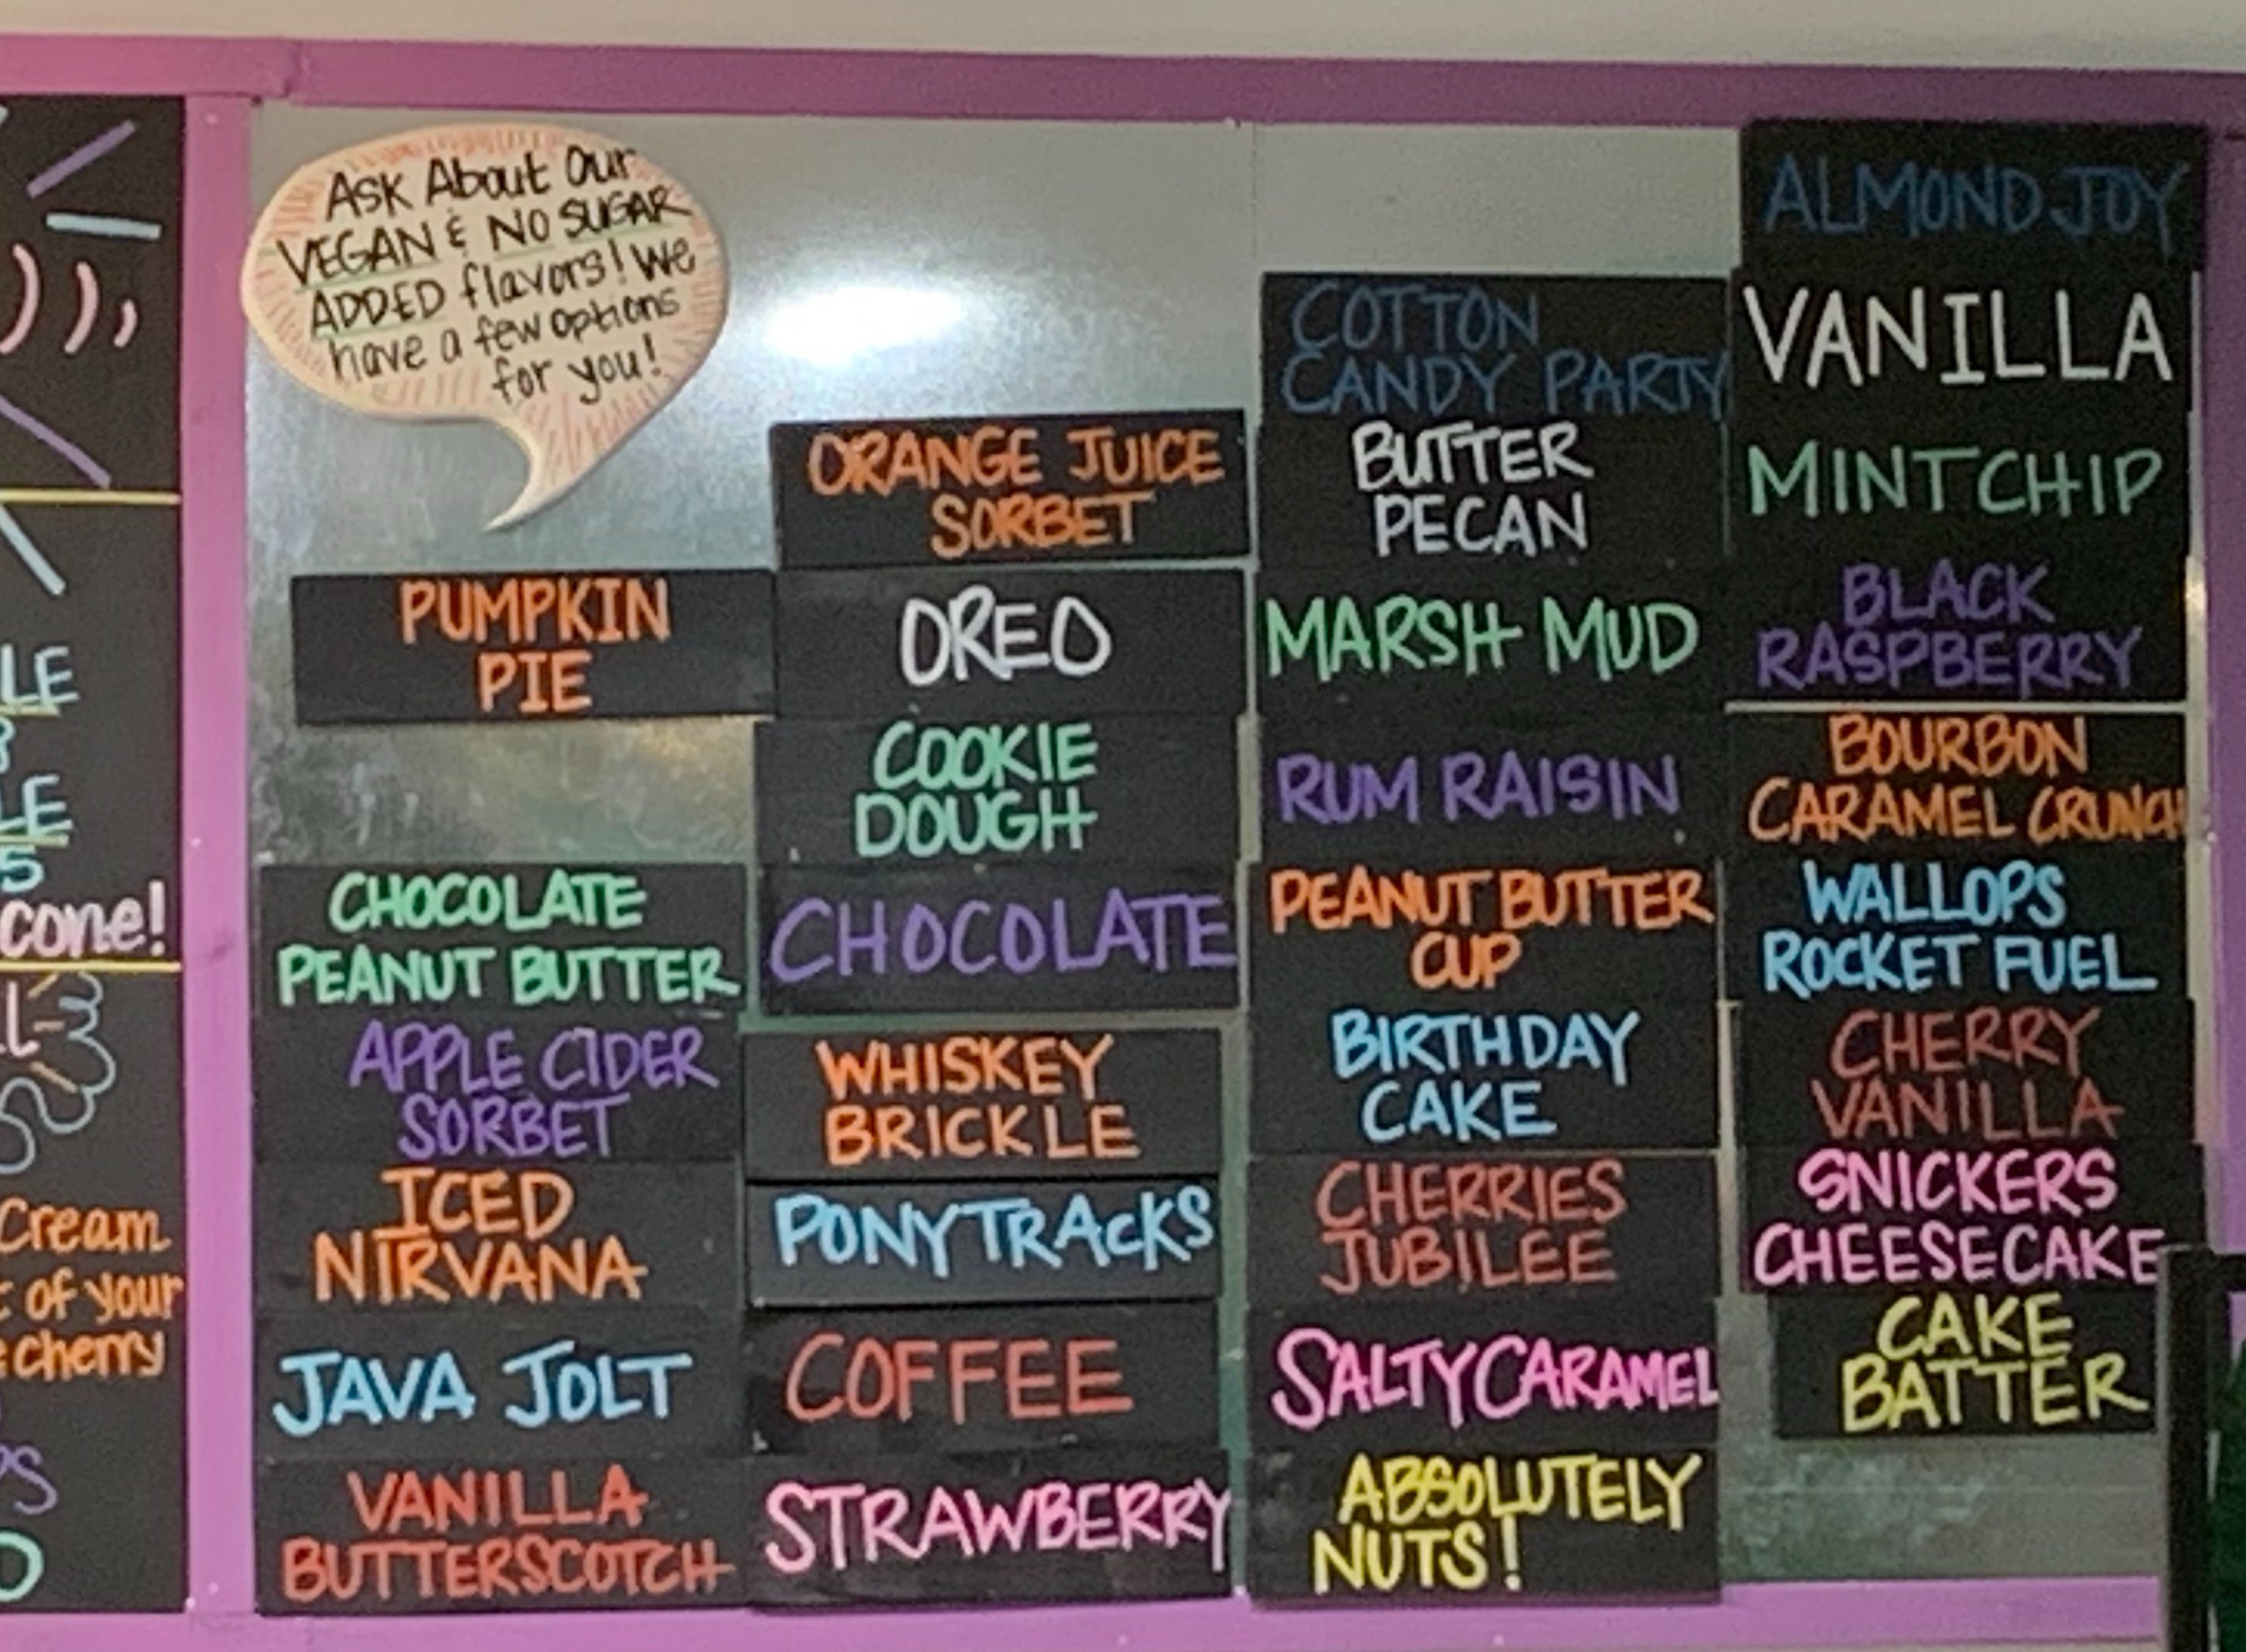 Ask About Our
VEGAN & NO SUGAR
ADDED flavors! We
have a few options
for you!
PUMPKIN
PIE
CHOCOLATE
PEANUT BUTTER
APPLE CIDER
SORBET
ICED
NIRVANA
JAVA JOLT
VANILLA
BUTTERSCOTCH
ORANGE JUICE
SORBET
OREO
COOKIE
DOUGH
CHOCOLATE
WHISKEY
BRICKLE
PONY TRACKS
COFFEE
STRAWBERRY
COTTON
CANDY PARTY
BUTTER
PECAN
MARSH MUD
RUM RAISIN
PEANUT BUTTER
CUP
BIRTHDAY
CAKE
CHERRIES
JUBILEE
SALTY CARAMEL
ABSOLUTELY
NUTS!
ALMOND JOY
VANILLA
MINT CHIP
BLACK
RASPBERRY
BOURBON
CARAMEL CRUNCH
WALLOPS
ROCKET FUEL
CHERRY
VANILLA
SNICKERS
CHEESECAKE
CAKE
BATTER
cone!
Cream
of your
cherry